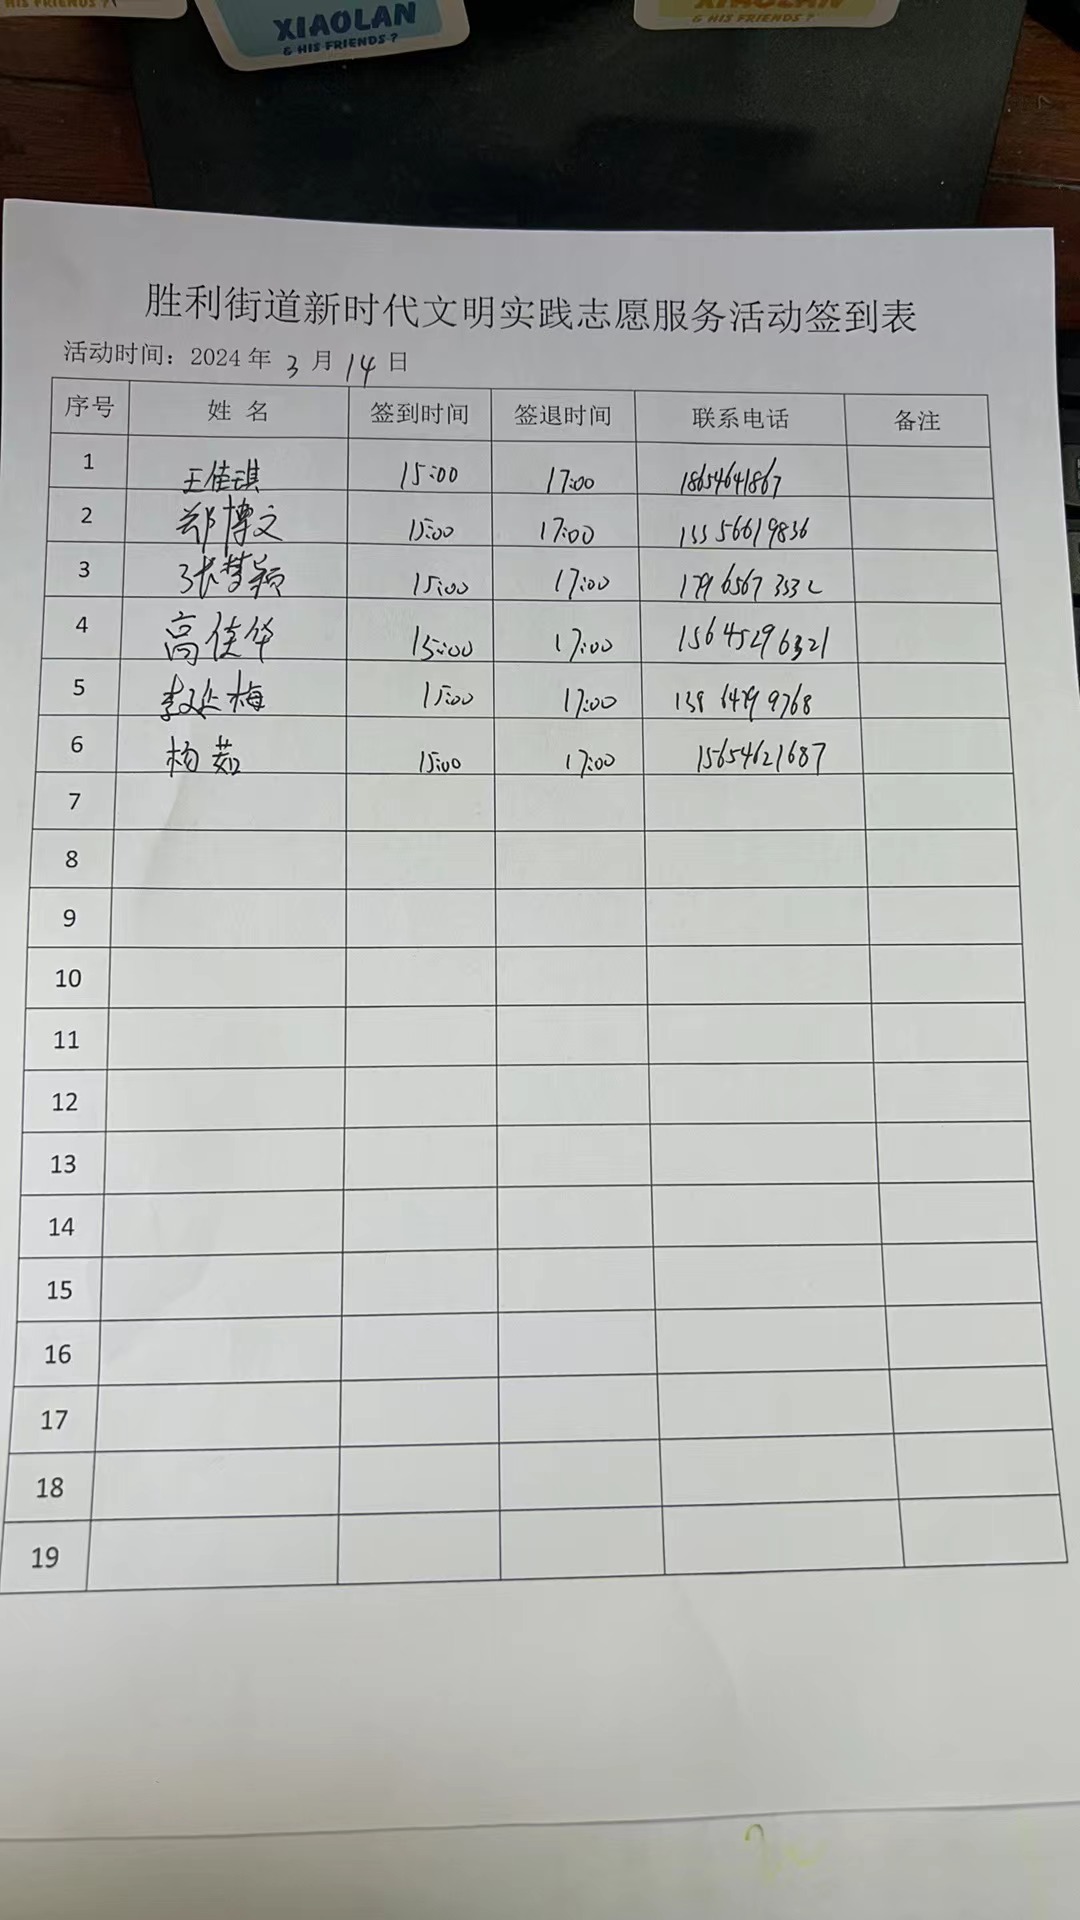 HIS FRIENDS ?
XIAOLAN
& HIS FRIENDS ?
XIAOLAN
& HIS FRIENDS ?
胜利街道新时代文明实践志愿服务活动签到表
活动时间：2024 年 3 月 14 日
序号 姓 名 签到时间 签退时间 联系电话 备注
1 王佳琪 15:00 17:00 18654641867
2 郑博文 15:00 17:00 15556619836
3 张梦颖 15:00 17:00
4 高佳华 15:00 17:00 15645296321
5 李延梅 15:00 17:00
6 杨茹 15:00 17:00 15654621687
7
8
9
10
11
12
13
14
15
16
17
18
19